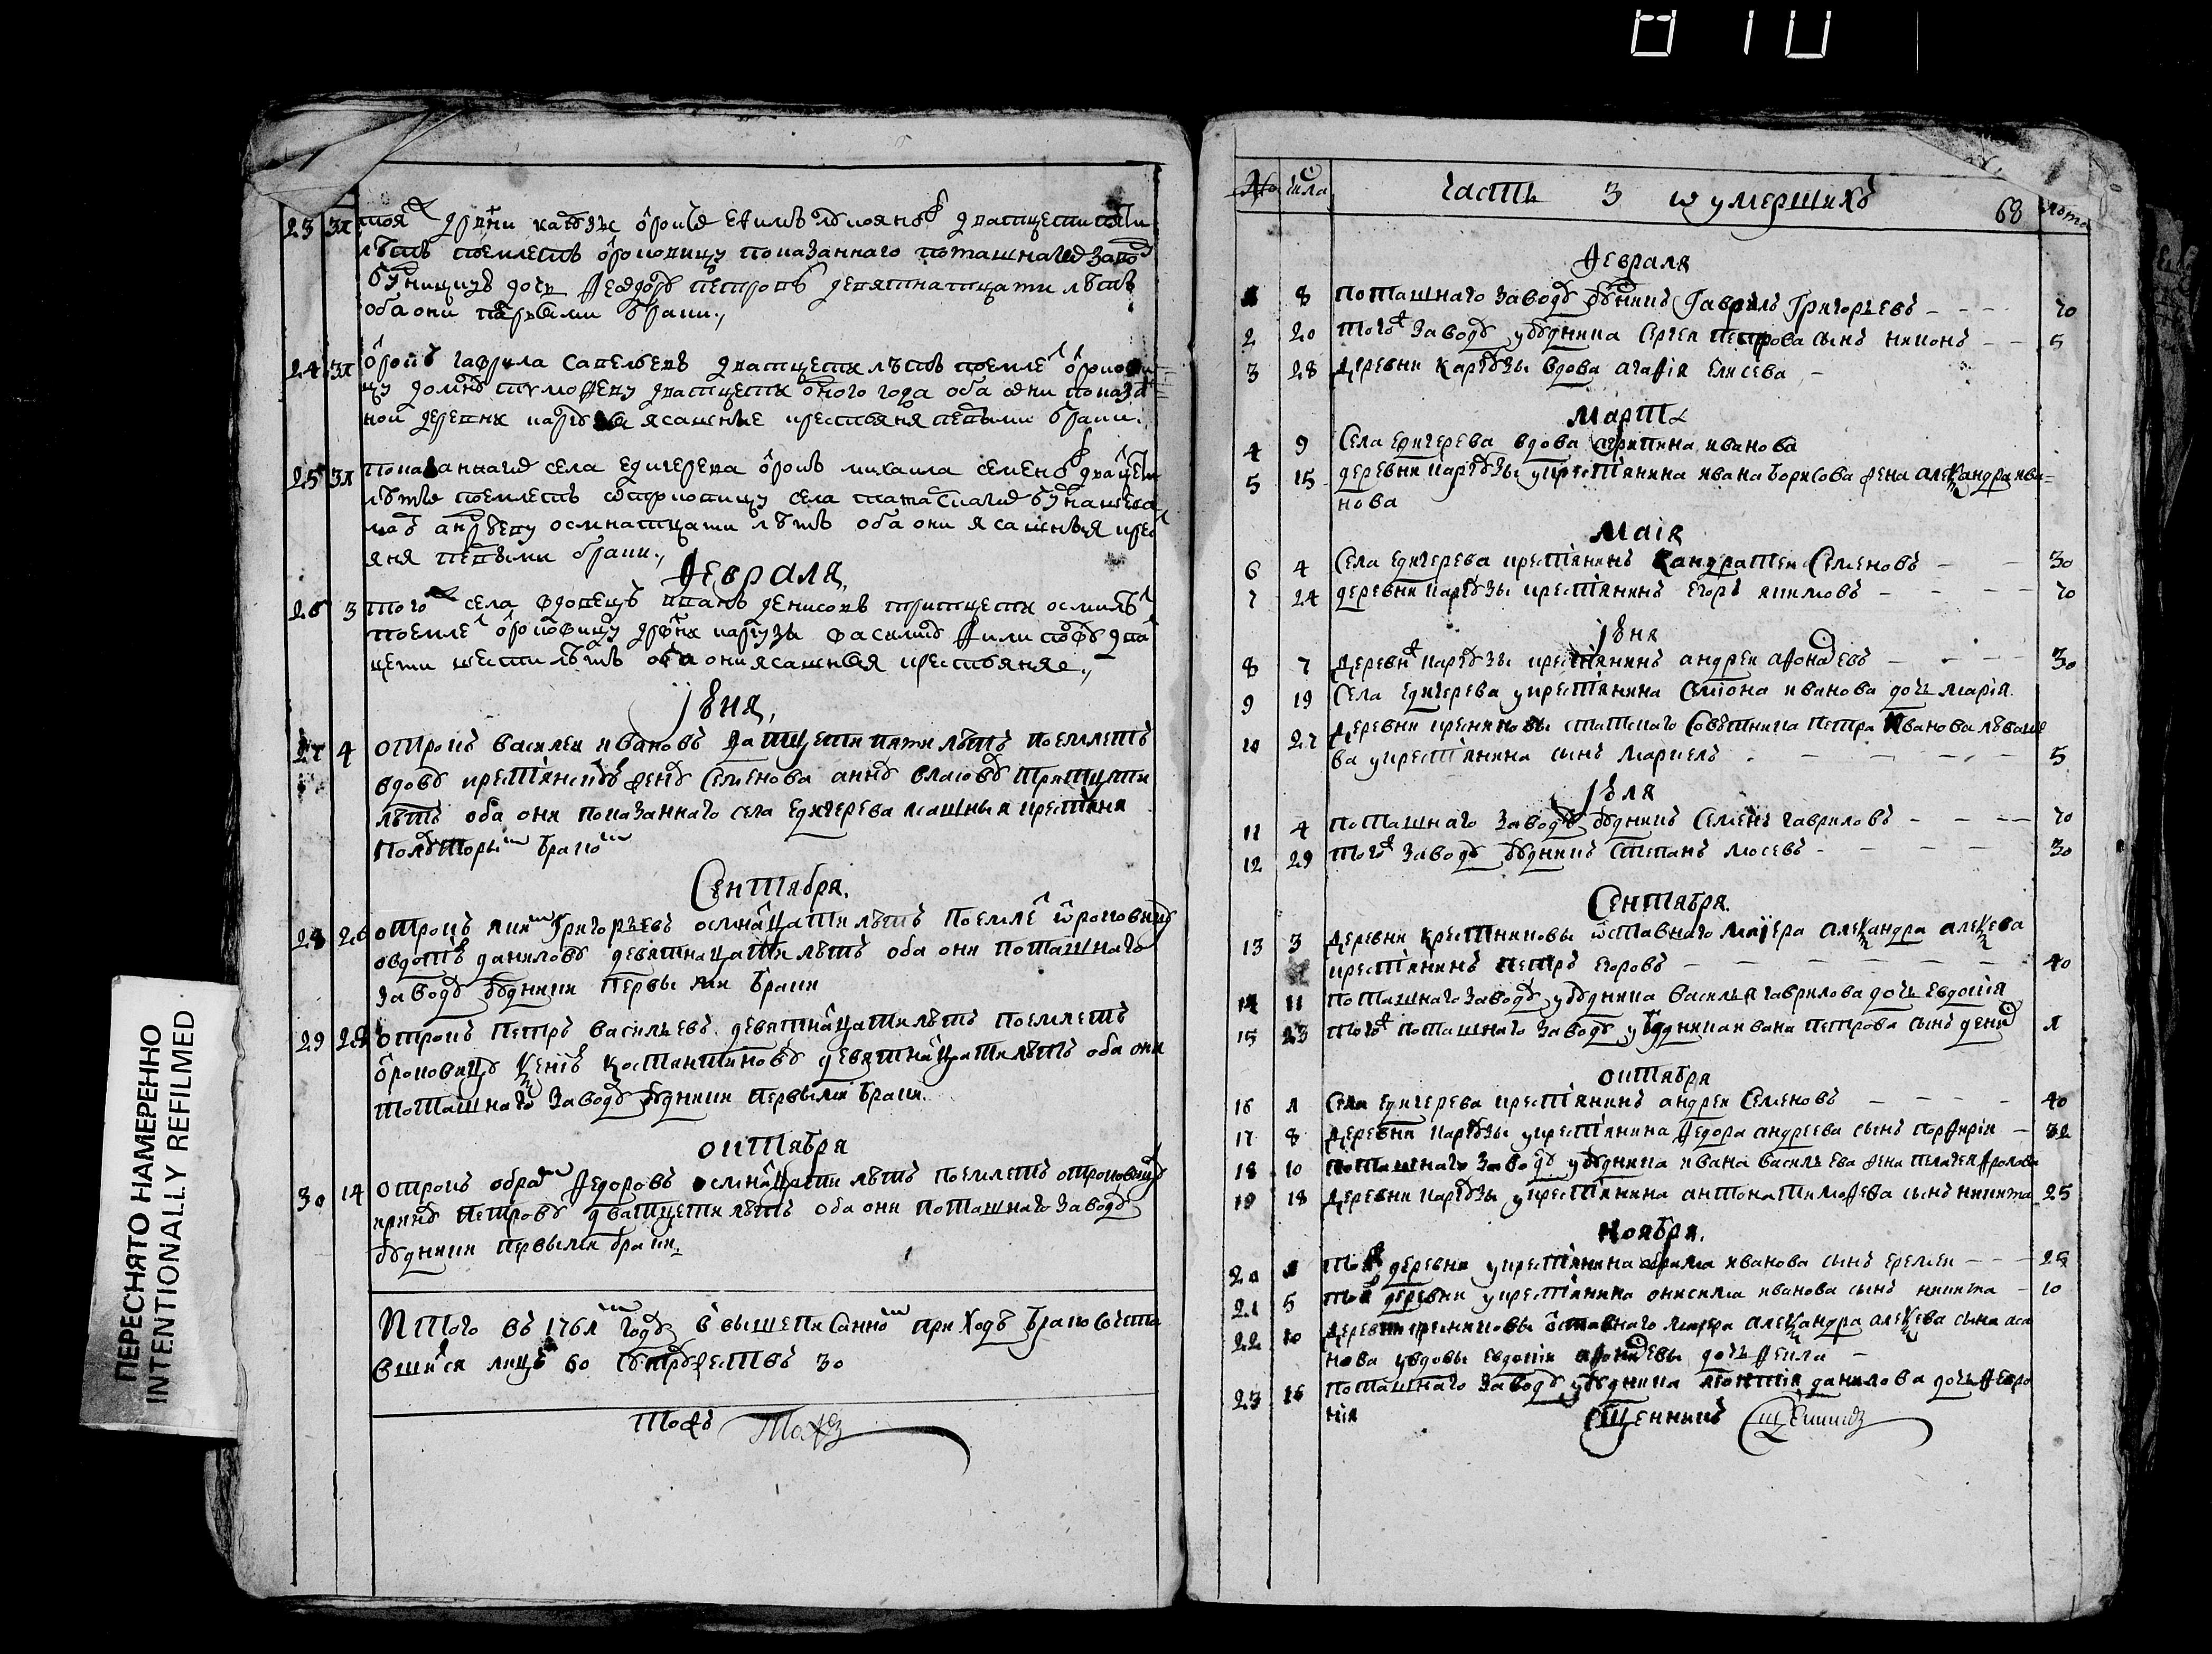 810
23 31 тояж дрвни карбзы отрокъ Ефимъ дватцети пяти
лѣтъ поемлетъ отроковицу показаннаго поташнаго завод
будницицъ дочь Феодору Петрову девятнатцати лѣтъ
оба они первыми браки.,
24 31 отрокъ Гаврила Савельевъ дватцети лѣтъ поемле отроко
цу Домну Тимофееву дватцети оного года оба они показа
ной деревни карбзы ясашные крестьяня первыми браки.
25 31 показаннаго села Едигерева отрокъ Михаила Семенов двацети
лѣтъ поемлетъ отроковицу села
Андрееву осмнатцати лѣтъ оба они ясашныя крес
яня первыми браки.,
Февраля,
26 3 того ж села вдовецъ Иванъ Денисовъ тритцети осми лѣ
поемле отроковицу дрвни карбзы Василису Филипову два
цети шести лѣтъ оба они ясашныя крестьяняе.,
Јуня,
27 4 отрокъ Василеи Ивановъ дватцети пяти лѣтъ поемлетъ
вдову крестьянскую жену Семенова Анну Власову тритцети
лѣтъ оба они показаннаго села Едигерева ясашныя крестьяня
полуторым браком
Сентября.
28 26 отрокъ Яким Григорьевъ осмнацати лѣтъ поемле отроковицу
Овдотью Данилову девятнацати лѣтъ оба они поташнаго
заводу будники первыми браки
29 28 отрокъ Петръ Васильевъ девятнацати лѣтъ поемлетъ
отроковицу Ксенію Костантинову девятнацати лѣтъ оба они
поташнаго заводу будники первыми браки.
октября
30 14 отрокъ Абрам Федоровъ осмнацати лѣтъ поемлетъ отроковицу
Ирину Петрову дватцети лѣтъ оба они поташнаго заводу
будники первыми браки.
Итого въ 1761м году в вышеписанном приходѣ браком сочета
вшихся лицъ 60 супружествъ 30
тожъ Тожъ
ПЕРЕСНЯТО НАМЕРЕННО
INTENTIONALLY REFILMED
№ числа Часть 3 ѡ умершихъ 68 лѣта
Февраля
1 8 поташнаго заводу будникъ Гаврилъ Григорьевъ - - - 70
2 20 того ж заводу у будника Сергея Петрова сынъ Никонъ - - 5
3 28 деревни Карбзы вдова Агафія Елисева -
Марта
4 9 села Едигерева вдова Агрипина Иванова
5 15 деревни Карбзы у крестьянина Ивана Борисова жена Александра Ива=
нова
Маія
6 4 села Едигерева крестьянинъ Кандратеи Семеновъ - - 30
7 24 деревни Карбзы крестьянинъ Егоръ Якимовъ - - - - 70
Јуня
8 7 деревни Карбзы крестьянинъ Андреи Афонасевъ - - - 30
9 19 села Едигерева у крестьянина Семіона Иванова дочь Марія
10 27 деревни статскаго совѣтника Петра Иванова Лѣваше
ва у крестьянина сынъ Маркелъ - - - - - 5
Јуля
11 4 поташнаго заводу будникъ Семенъ Гавриловъ - - - 70
12 29 того ж заводу будникъ Степанъ Мосевъ - - - - 30
Сентября.
13 3 деревни Крестниковы отставного Маіера Александра Алексева
крестьянинъ Петръ Егоровъ - - - - - - - 40
14 11 поташнаго заводу у будника Василья Гаврилова дочь Евдокія
15 23 того ж поташнаго заводу у будника Ивана Петрова сынъ 1
октября
16 1 села Едигерева крестьянинъ Андреи Семеновъ - - - - 40
17 8 деревни Карбзы у крестьянина Федора Андреева сынъ Порфиріи - 32
18 10 поташнаго заводу у будника Ивана Васильева жена Пелагея Фролова
19 18 деревни Карбзы у крестьянина Антона Тимофева сынъ Никита 25
Ноября.
20 1 тояж деревни у крестьянина Иванова сынъ Еремеи - - - 25
21 5 тояж деревни у крестьянина Онисима Иванова сынъ Никита - 10
22 10 деревни отставного маіера Александра Алексева сына
нова у вдовы Евдокіи Афонасевы дочь Фекла -
23 16 поташнаго заводу у будника Данилова дочь Февро
нія
Сщенникъ Сщенникъ